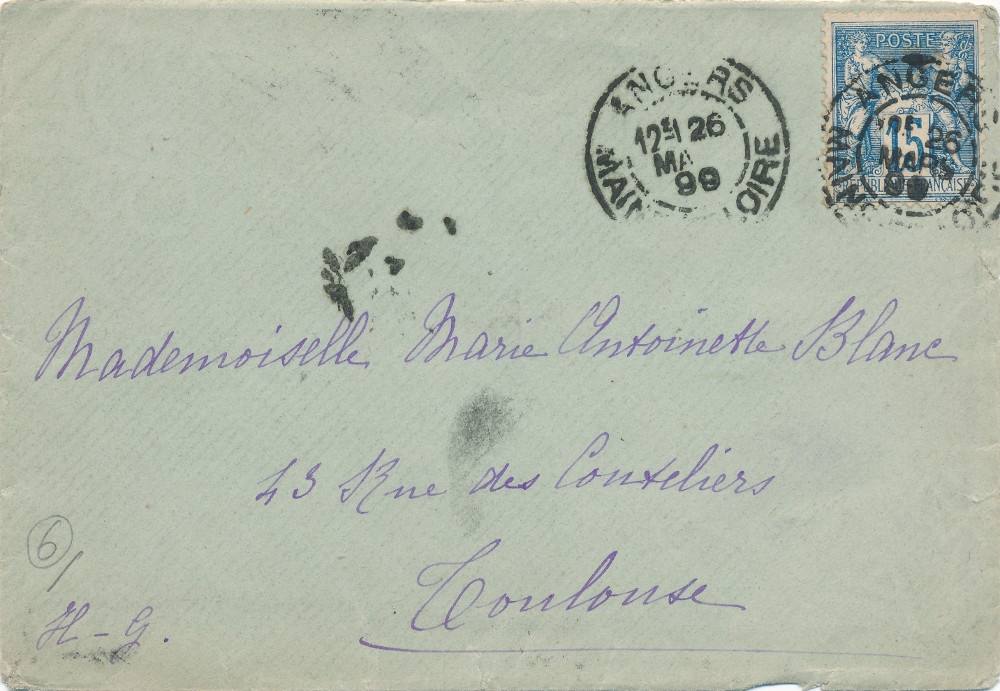 POSTE
15
RÉPUBLIQUE FRANÇAISE
ANGERS
12E 26
MARS
99
MAINE
ANGERS
12E 26
MA
99
MAINE LOIRE
Mademoiselle Marie Antoinette Blanc
43 Rue des Couteliers
Toulouse
6
H-G.